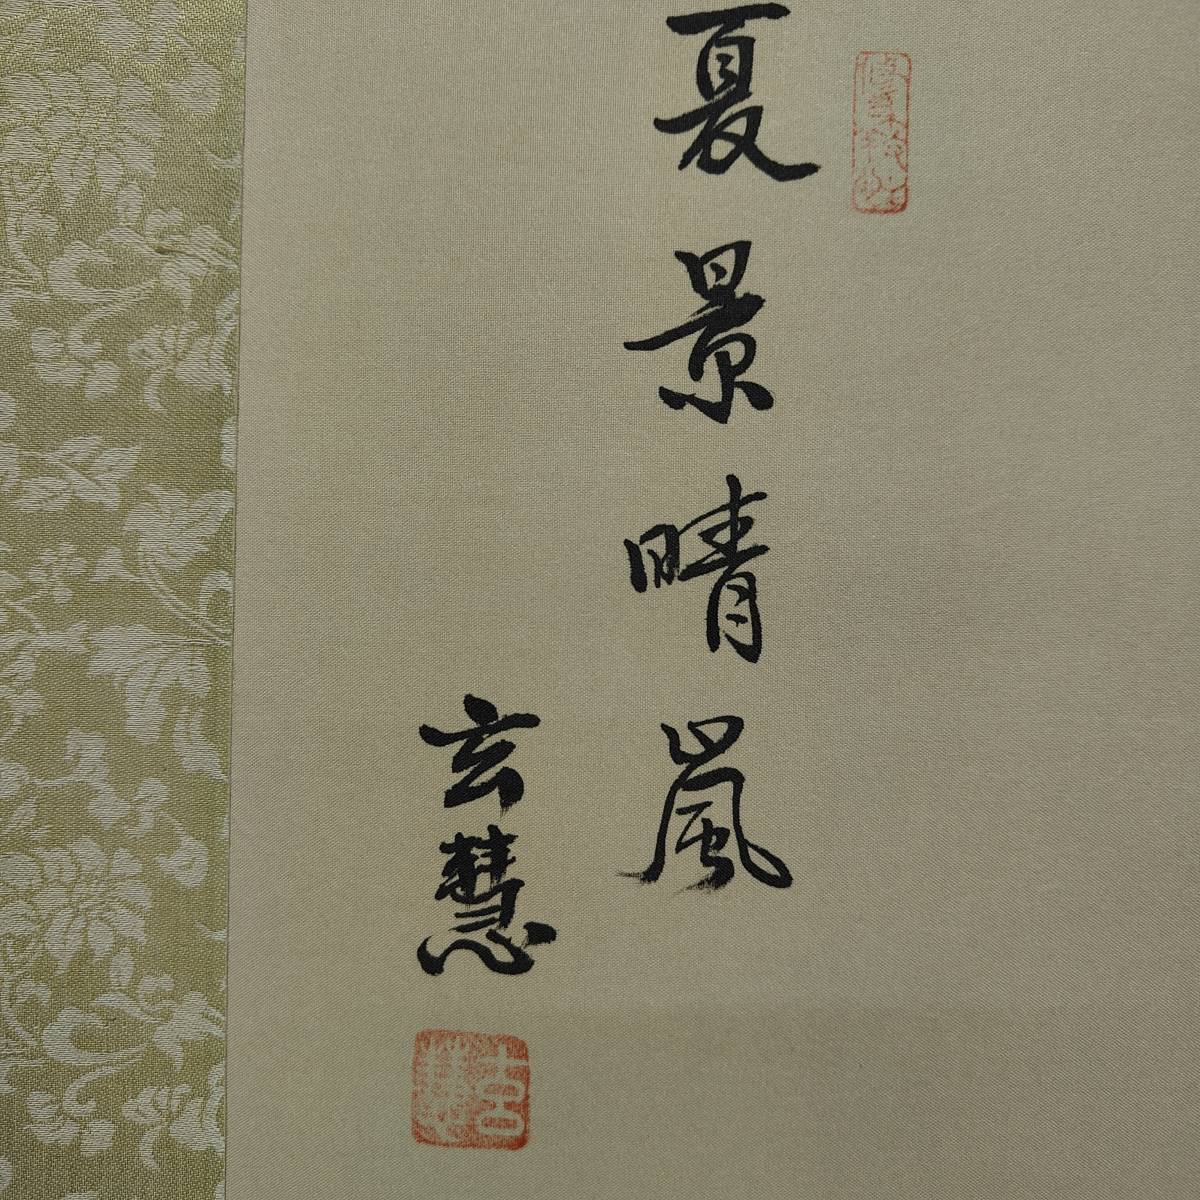 夏景晴嵐
玄慧